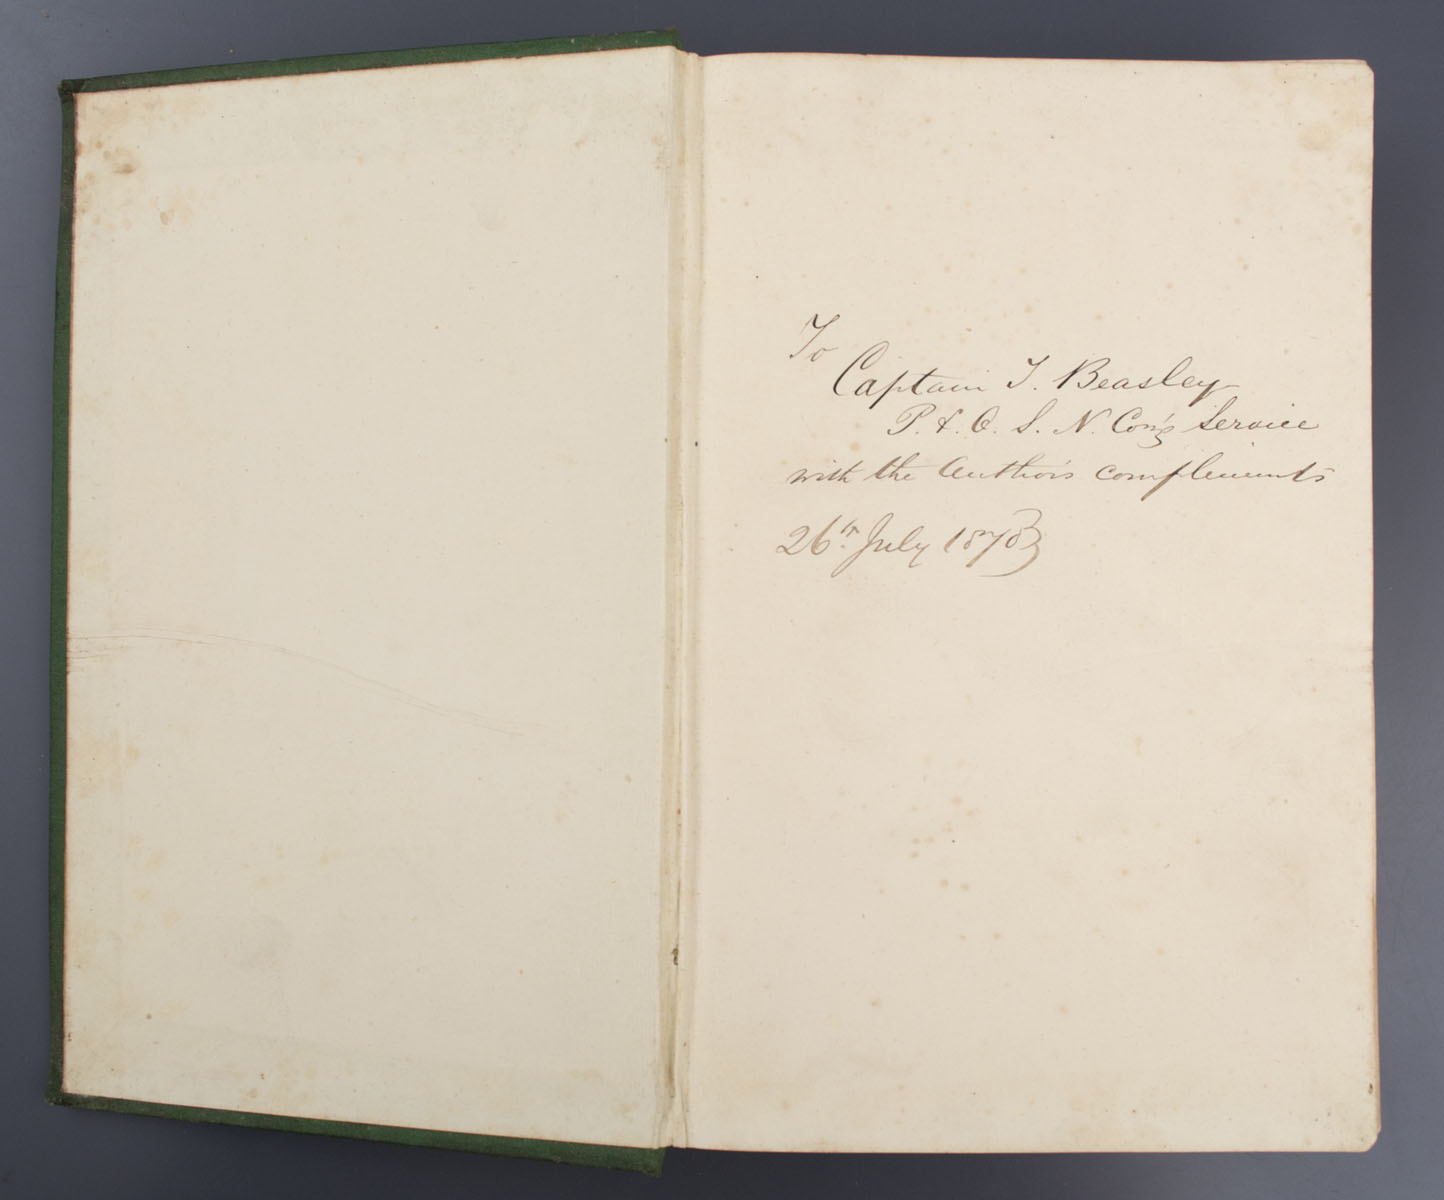 To
Captain T. Beasley
P. & O. S. N. Coy's Service
with the Author's compliments
26th July 1878